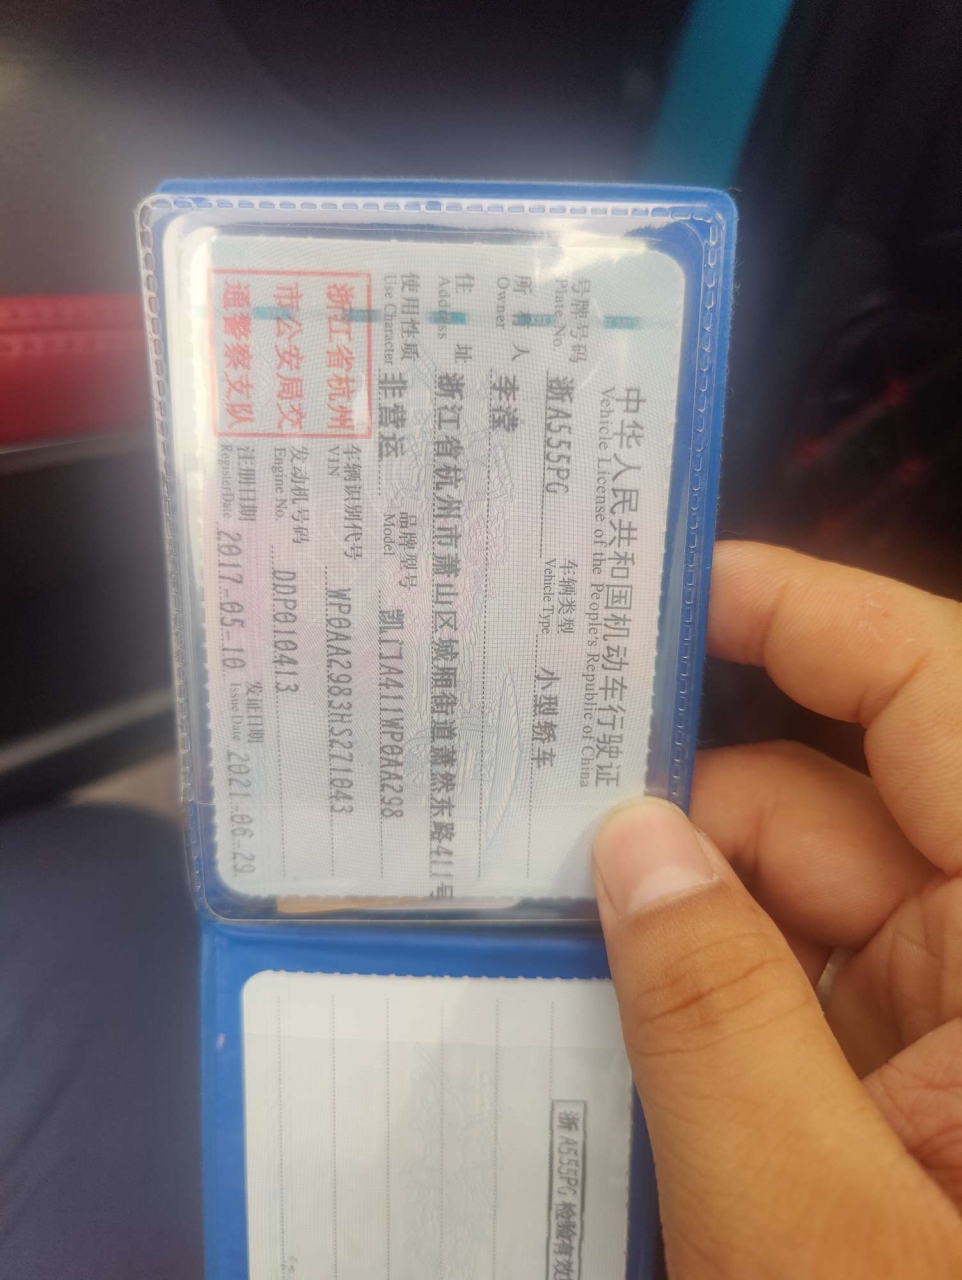 中华人民共和国机动车行驶证
Vehicle License of the People's Republic of China
号牌号码 浙A555PG 车辆类型 小型轿车
Plate No. Vehicle Type
所有人 李滢
Owner
住址 浙江省杭州市萧山区城厢街道萧然东路411号
Address
使用性质 非营运 品牌型号 凯门A411WP0AA298
Use Character Model
浙江省杭州
市公安局交
通警察支队
车辆识别代号 WP0AA2983HS271043
VIN
发动机号码 DDP010413
Engine No.
注册日期 2017-05-10 发证日期 2021-06-29
Register Date Issue Date
浙A555PG 检验有效